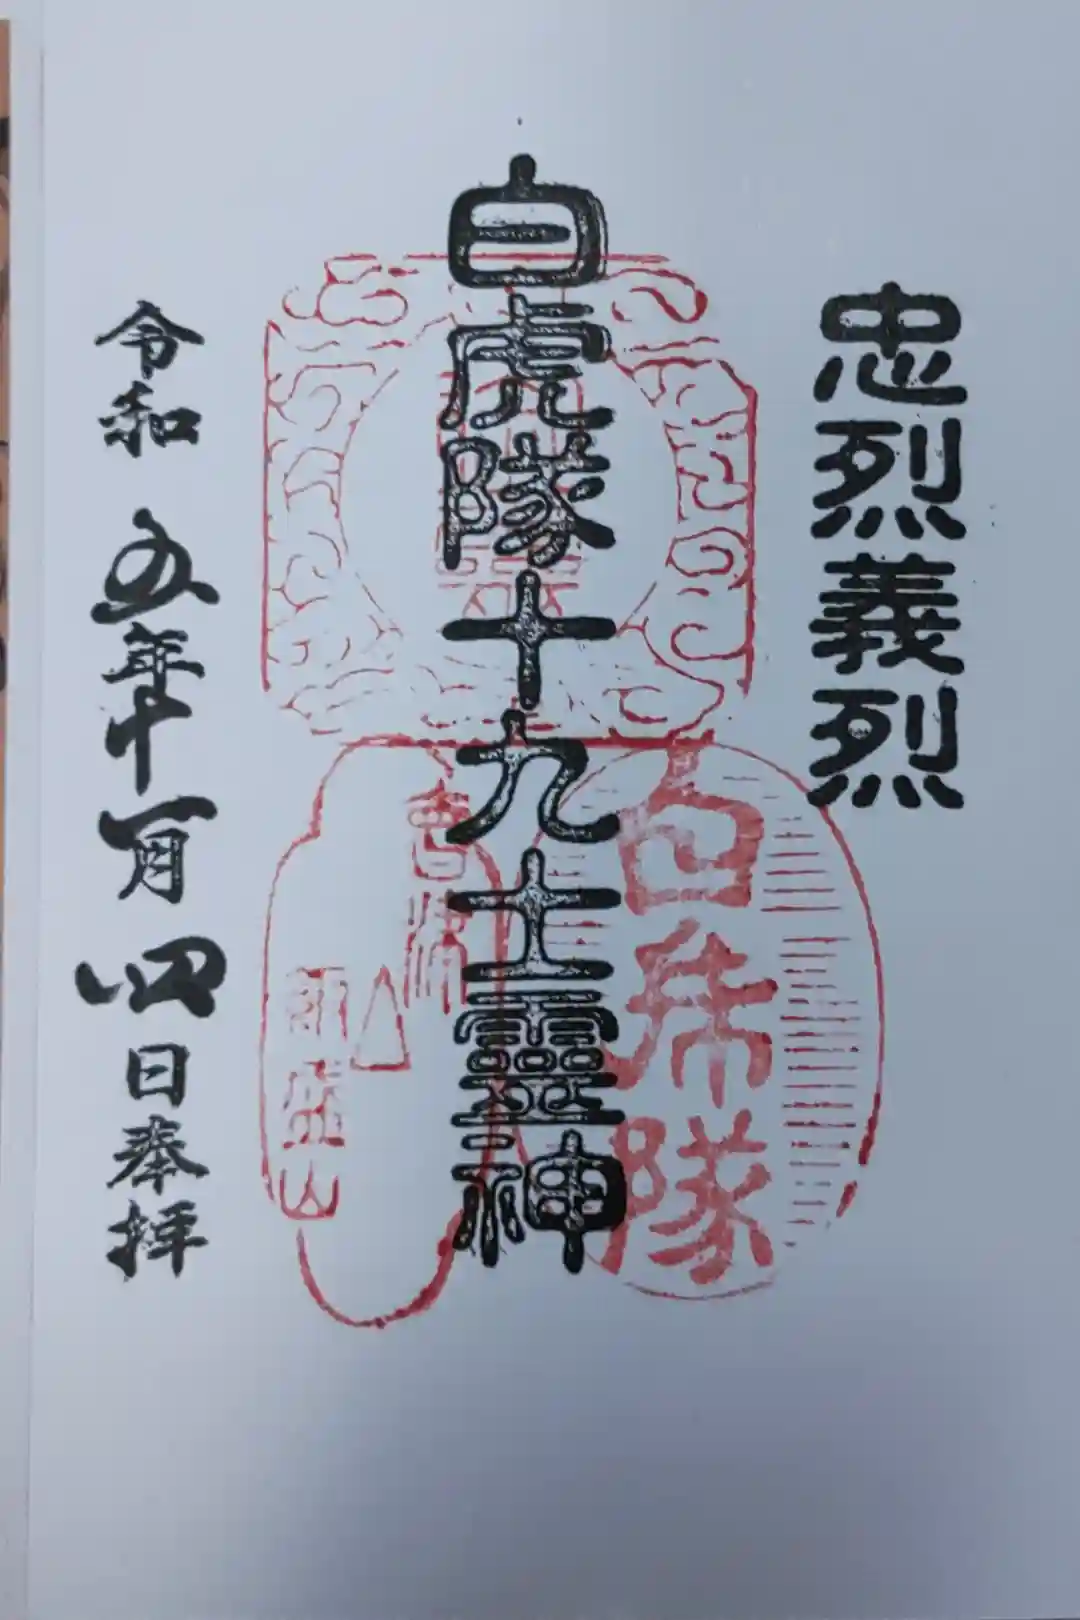 忠烈義烈
白虎隊十九士靈神
令和五年十一月四日奉拝
白虎隊
會津
飯盛山